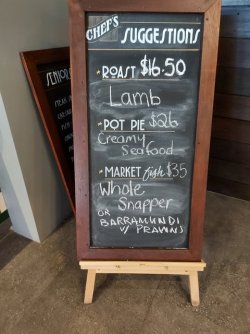 CHEF'S SUGGESTIONS
ROAST $16.50
Lamb
POT PIE $26
Creamy
Seafood
MARKET fish $35
Whole
Snapper
OR
BARRAMUNDI
w/ PRAWNS
SENIOR